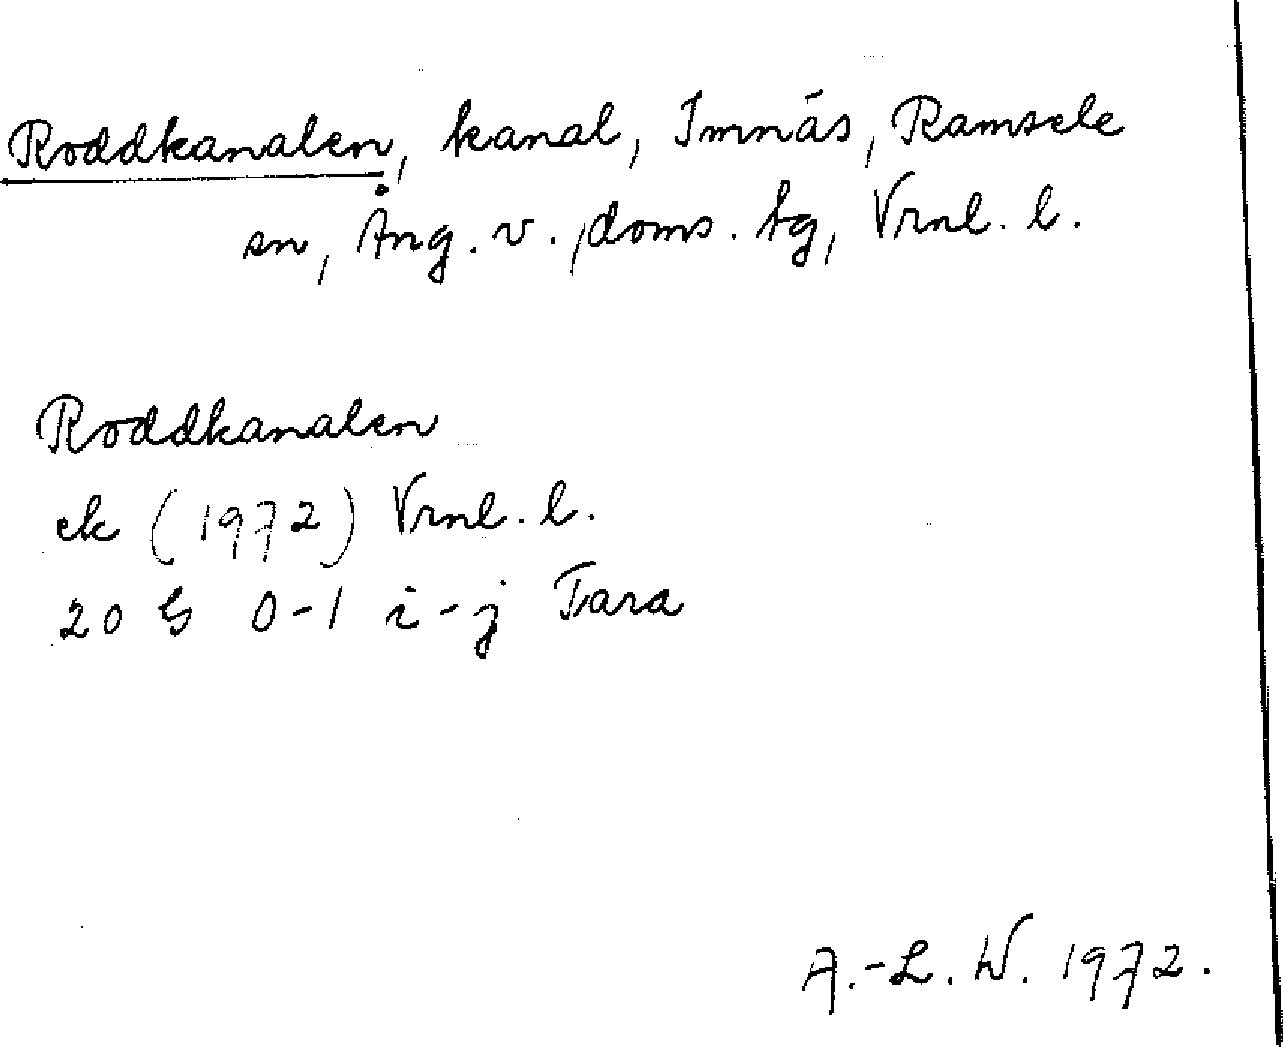 Roddkanalen, kanal, Imnäs, Ramsele
sn, Ång. v., doms. tg, Vrnl. l.
Roddkanalen
ek (1972) Vrnl. l.
20 G 0-1 i-j Tara
A.-L. W. 1972.